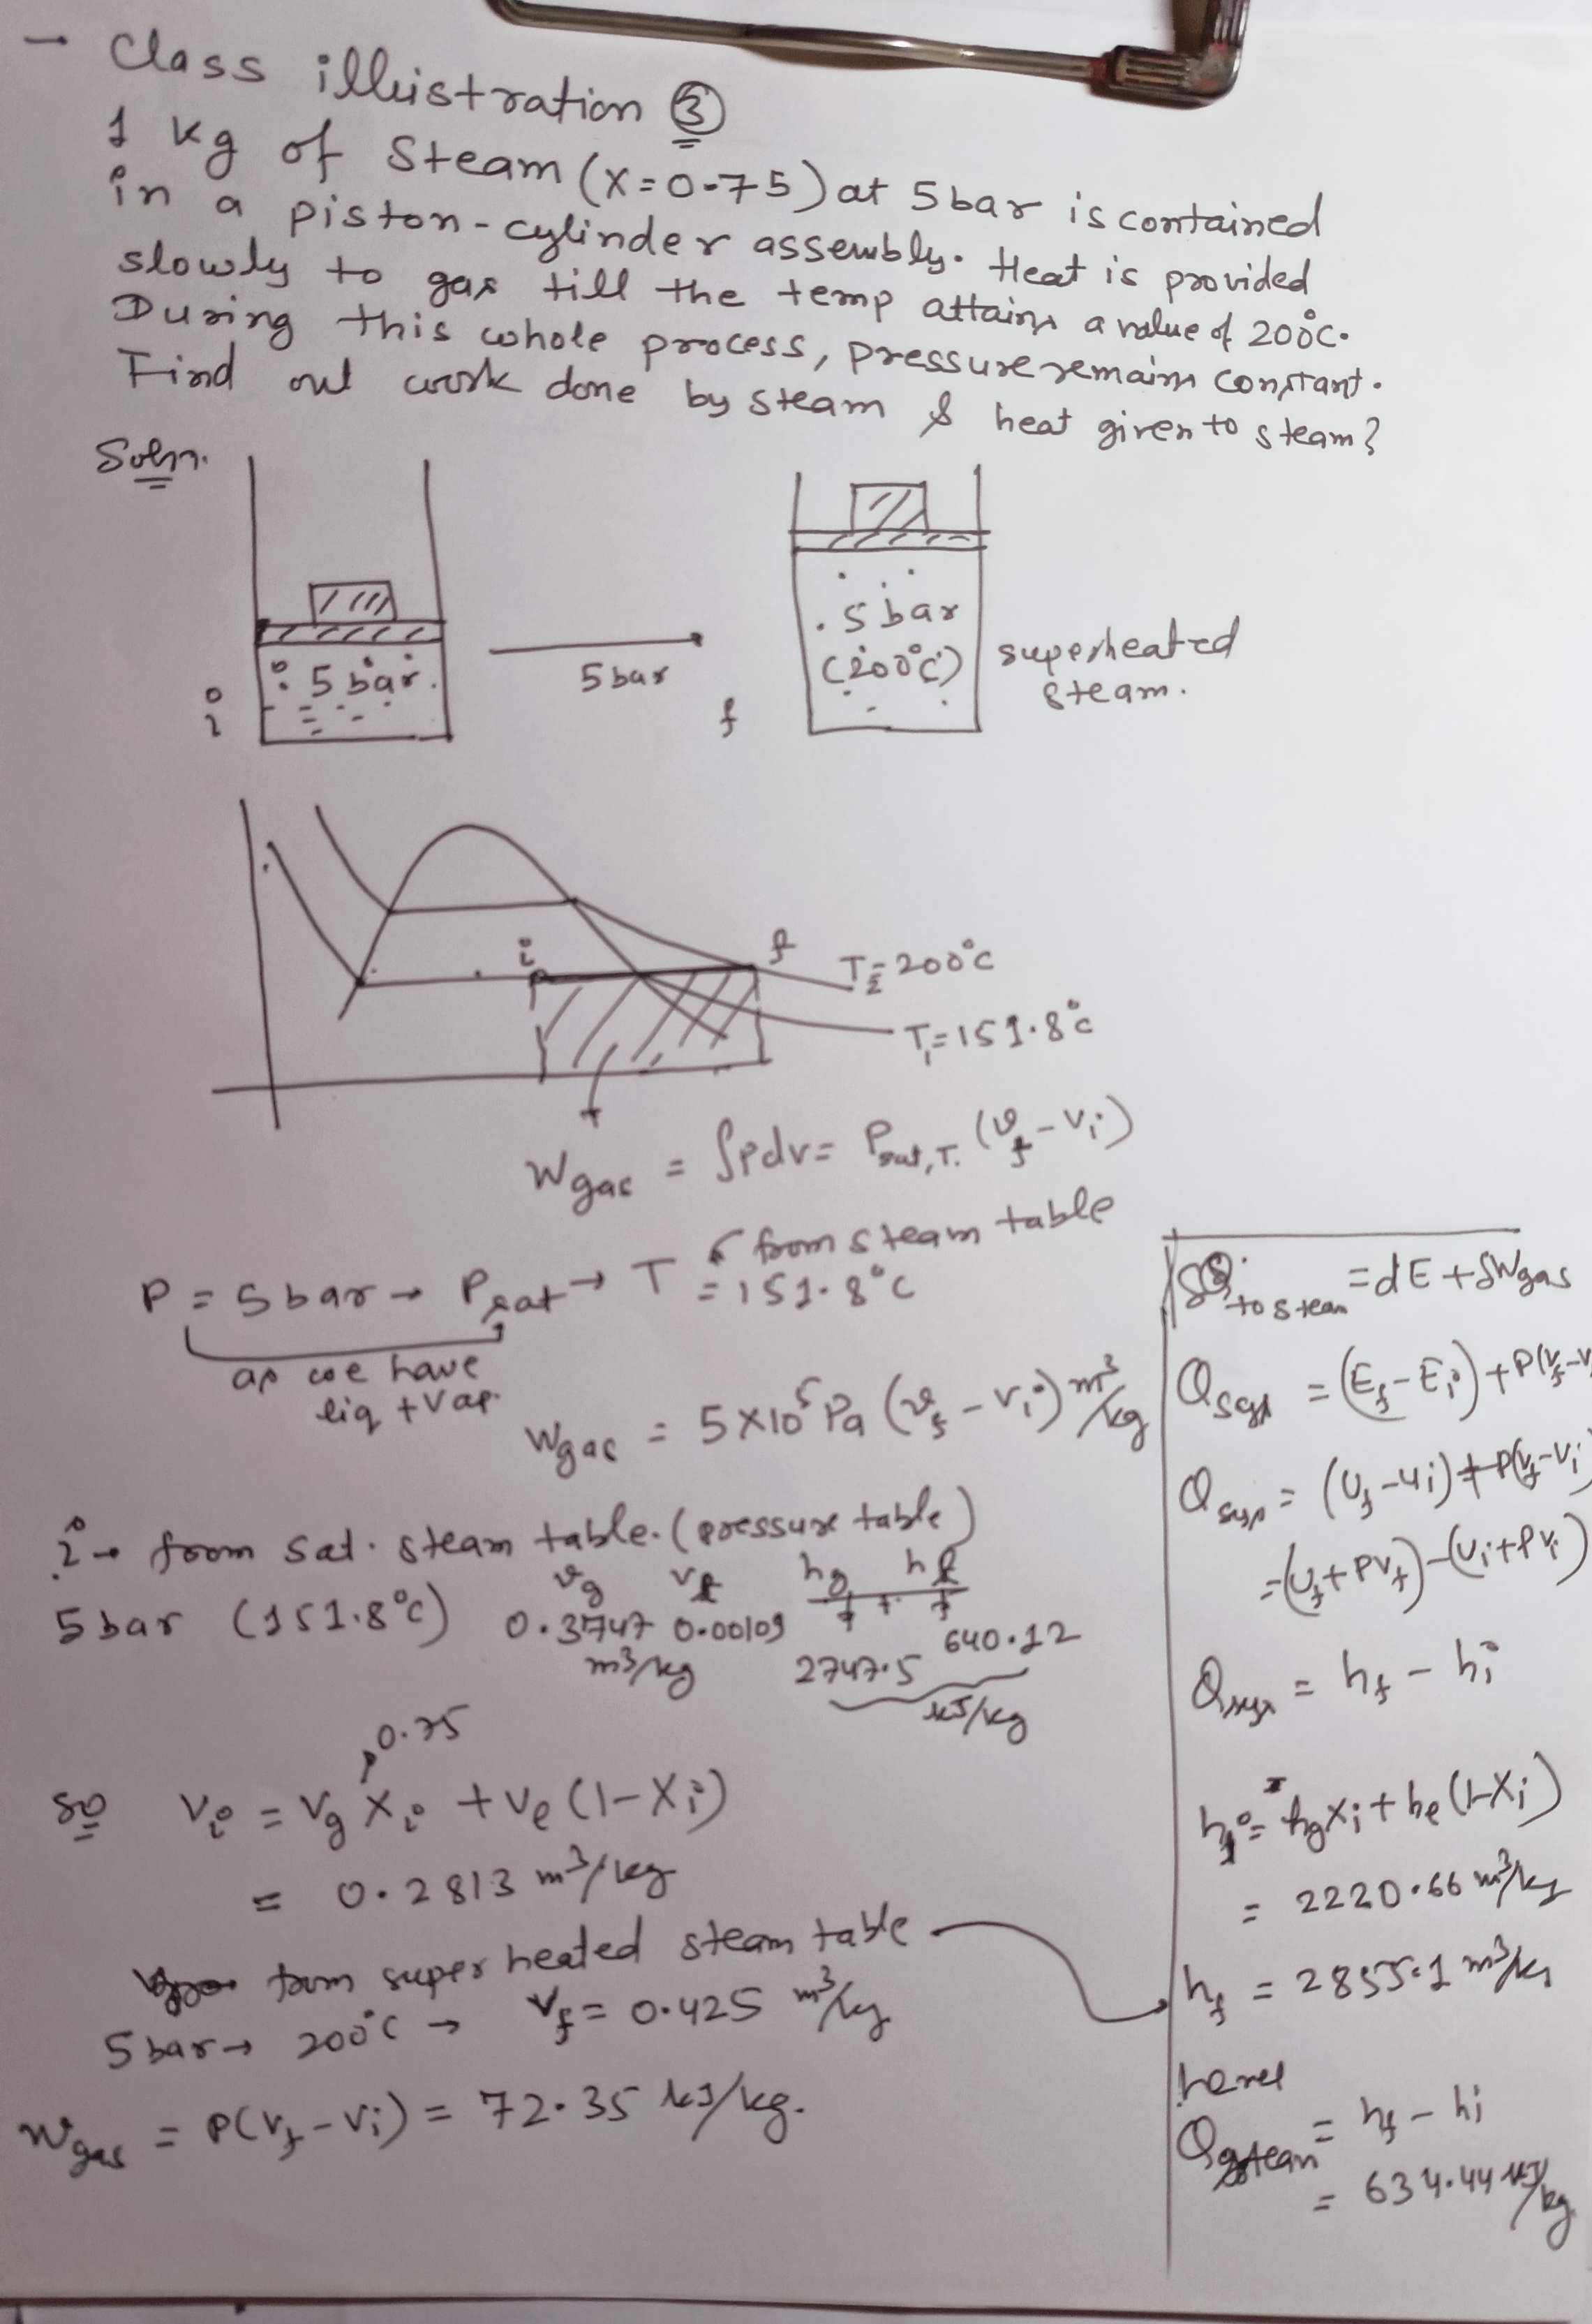 → Class illustration ③
1 kg of Steam (x=0.75) at 5 bar is contained
in a piston-cylinder assembly. Heat is provided
slowly to gas till the temp attains a value of 200°C.
During this whole process, pressure remains constant.
Find out work done by steam & heat given to steam?
Soln.
i
5 bar.
5 bar
f
5 bar
(200°C)
superheated
steam.
i
f
T₂=200°C
T₁=151.8°C
Wgas = ∫pdv = Psat,T. (vf - vi)
P = 5 bar → Psat → T from steam table
= 151.8°C
as we have
liq + Vap.
Wgas = 5×10⁵ Pa (vf - vi) m³/kg
i → from sat. steam table. (pressure table)
vg vl hg hl
5 bar (151.8°C) 0.3747 0.00109 2747.5 640.12
m³/kg kJ/kg
0.75
so vi = vg xi + vl (1-xi)
= 0.2813 m³/kg
from super heated steam table
5 bar → 200°C → vf = 0.425 m³/kg
Wgas = P(vf - vi) = 72.35 kJ/kg.
δQ to steam = dE + δWgas
Qsys = (Ef - Ei) + P(vf - v
Qsys = (Uf - Ui) + P(vf - vi)
= (Uf + PVf) - (Ui + PVi)
Qsys = hf - hi
hi = hg xi + hl (1-xi)
= 2220.66 m³/kg
hf = 2855.1 m³/kg
hence
Qsteam = hf - hi
= 634.44 kJ/kg